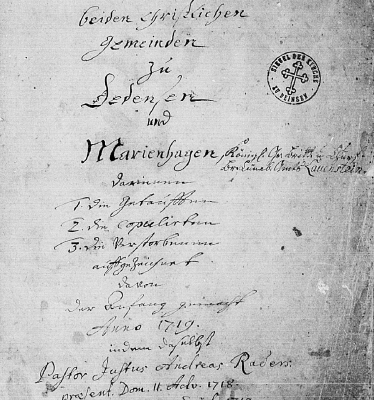 beiden Christlichen
Gemeinden
zu
Dedensen
und
Marienhagen, Königl. Gr. Britt. u. Churf.
Br. Lüneb. Amts Lauenstein,
darinnen
1. die Getaufften
2. die copulirten
3. die Verstorbenen
auffgezeichnet
davon
der Anfang gemacht
Anno 1719.
indem daselbst
Pastor Justus Andreas Raders
præsent. Dom. 11. Adv. 1718.
SIEGEL DER KIRCHE